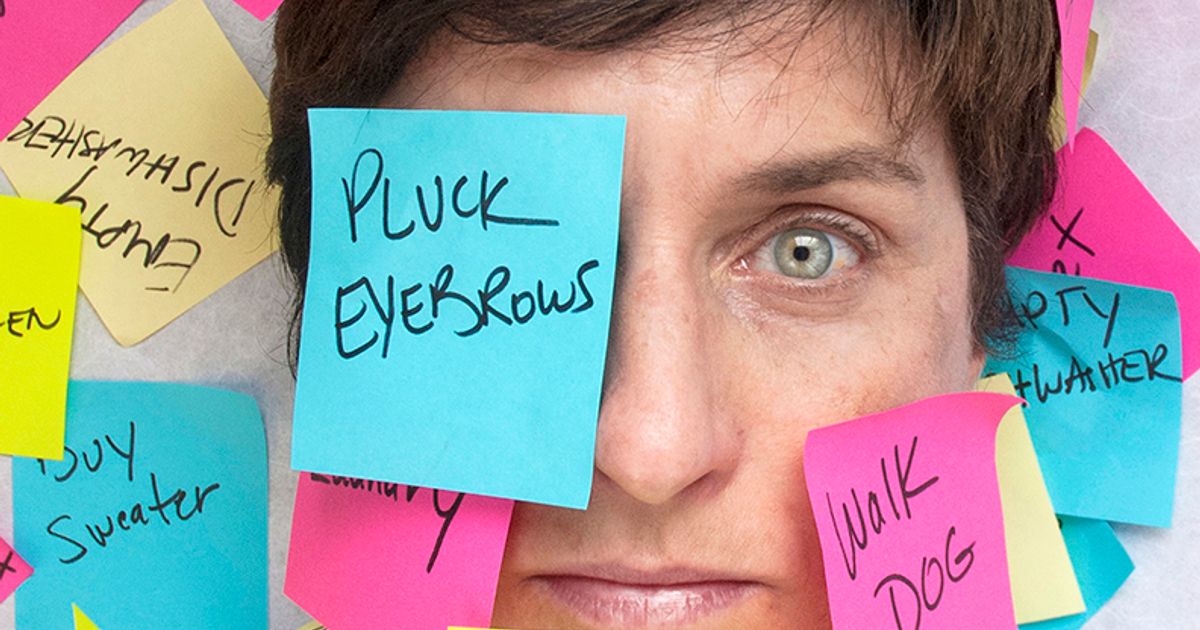 PLUCK
EYEBROWS
EMPTY
DISHWASHER
EN
BUY
Sweater
Laundry
WalK
DOG
X
PTY
HWASHER
X